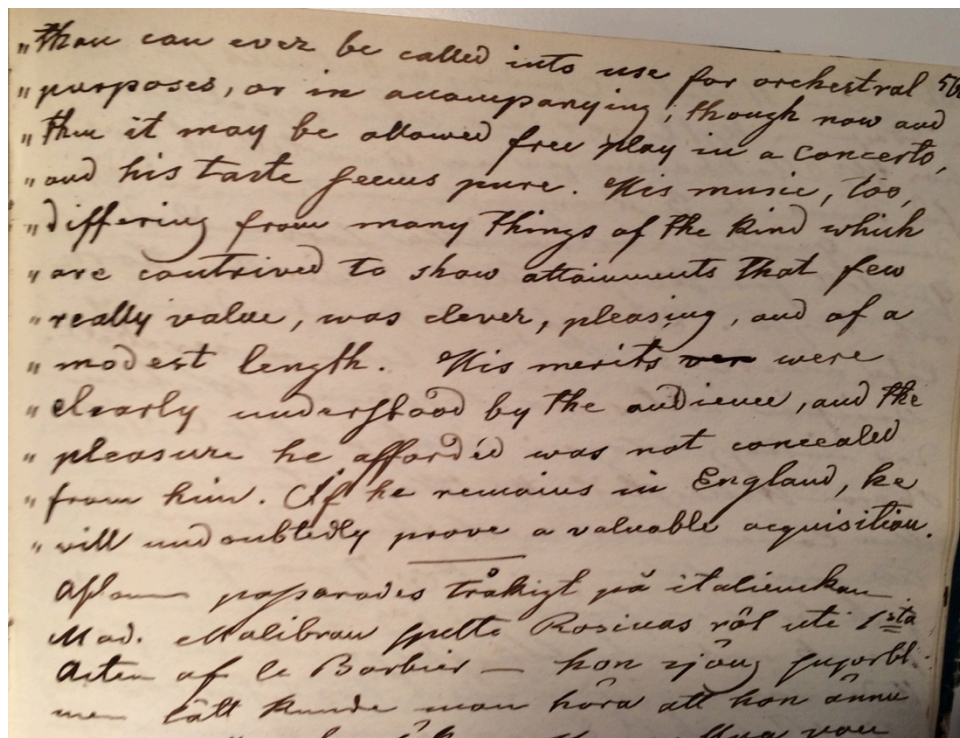 "than can ever be called into use for orchestral 56
"purposes, or in accompanying; though now and
"then it may be allowed free play in a concerto,
"and his taste seems pure. His music, too,
"differing from many things of the kind which
"are contrived to show attainments that few
"really value, was clever, pleasing, and of a
"modest length. His merits were
"clearly understood by the audience, and the
"pleasure he afforded was not concealed
"from him. If he remains in England, he
"will undoubtedly prove a valuable acquisition.
Aftonen passerades tråkigt på italienskan
Mad. Malibran spelte Rosinas rôl uti 1sta
Acten af le Barbier — hon sjöng superbt
men lätt kunde man höra att hon ännu